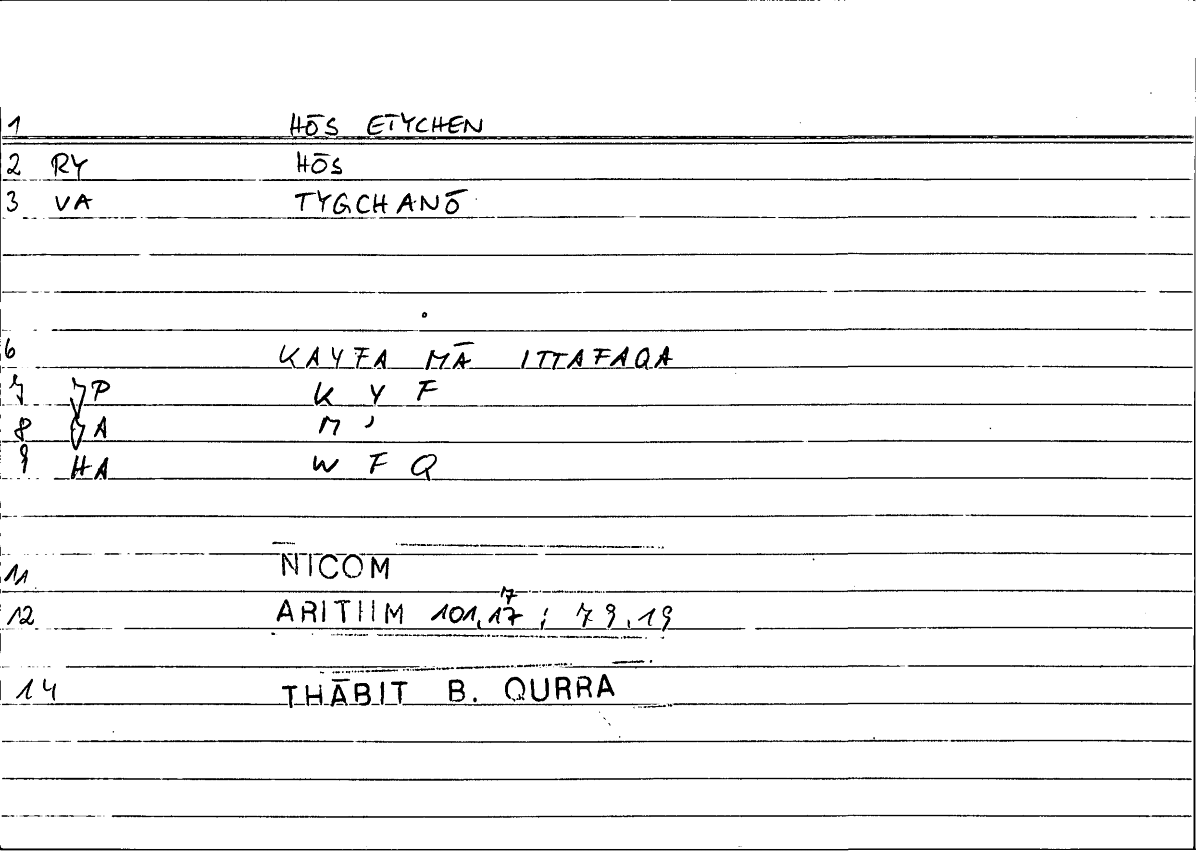 1 HŌS ETYCHEN
2 RY HŌS
3 VA TYGCHANŌ
6 KAYFA MĀ ITTAFAQA
7 JP K Y F
8 JA M '
9 HA W F Q
11 NICOM
12 ARITHM 101,17 ; 79,19
14 THĀBIT B. QURRA